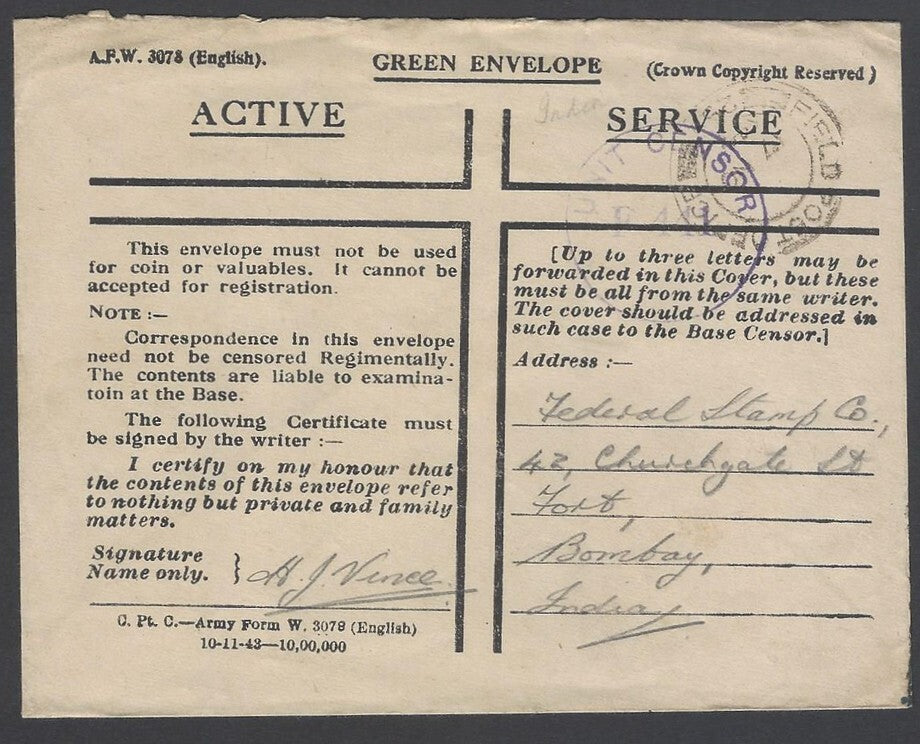 A.F.W. 3078 (English).
GREEN ENVELOPE
(Crown Copyright Reserved)
ACTIVE
SERVICE
India
FIELD POST OFFICE
UNIT CENSOR
This envelope must not be used
for coin or valuables. It cannot be
accepted for registration.
NOTE :—
Correspondence in this envelope
need not be censored Regimentally.
The contents are liable to examina-
toin at the Base.
The following Certificate must
be signed by the writer :—
I certify on my honour that
the contents of this envelope refer
to nothing but private and family
matters.
Signature
Name only. } H. J. Vince
C. Pt. C.—Army Form W. 3078 (English)
10-11-43—10,00,000
[Up to three letters may be
forwarded in this Cover, but these
must be all from the same writer.
The cover should be addressed in
such case to the Base Censor.]
Address :—
Federal Stamp Co.,
42, Churchgate St
Fort,
Bombay,
India